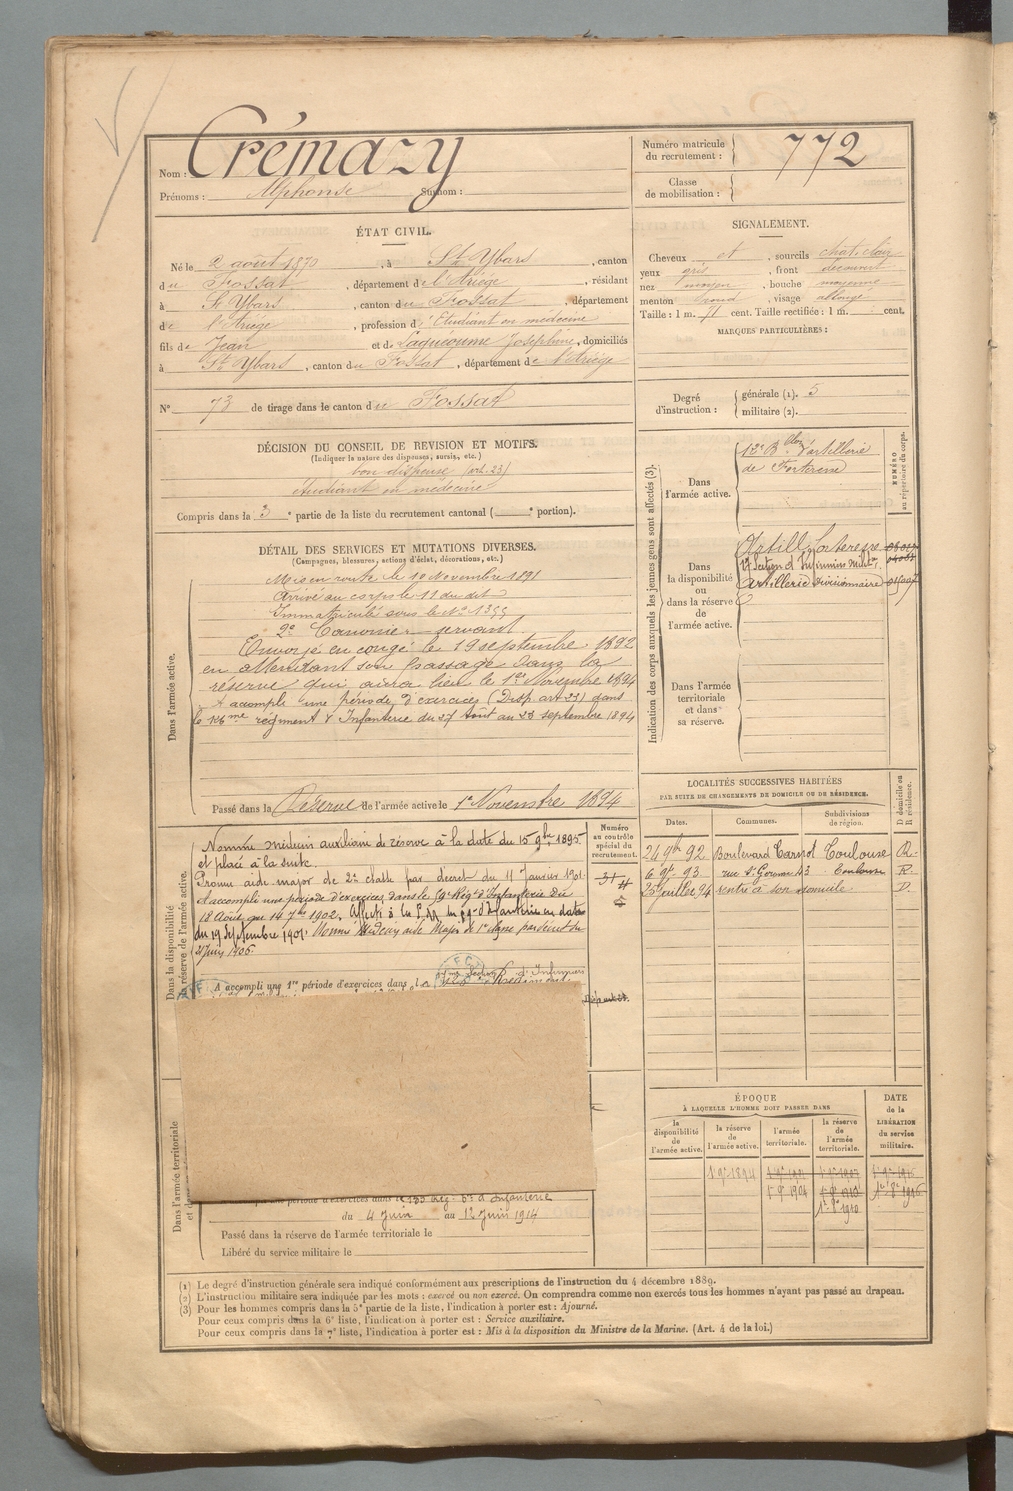 Nom : Crémazy
Prénoms : Alphonse Surnom :
Numéro matricule du recrutement : 772
Classe de mobilisation :
ÉTAT CIVIL.
Né le 2 août 1870, à St Ybars, canton
du Fossat, département de l'Ariège, résidant
à St Ybars, canton du Fossat, département
de l'Ariège, profession d'Etudiant en médecine
fils de Jean et de Laquéoume Joséphine, domiciliés
à St Ybars, canton du Fossat, département de l'Ariège
N° 73 de tirage dans le canton du Fossat
SIGNALEMENT.
Cheveux et, sourcils chat. clair
yeux gris, front découvert
nez moyen, bouche moyenne
menton rond, visage allongé
Taille : 1 m. 71 cent. Taille rectifiée : 1 m. cent.
MARQUES PARTICULIÈRES :
Degré d'instruction : générale (1). 5
militaire (2).
DÉCISION DU CONSEIL DE REVISION ET MOTIFS.
(Indiquer la nature des dispenses, sursis, etc.)
bon dispensé (art. 23)
étudiant en médecine
Compris dans la 3e partie de la liste du recrutement cantonal ( e portion).
DÉTAIL DES SERVICES ET MUTATIONS DIVERSES.
(Campagnes, blessures, actions d'éclat, décorations, etc.)
Dans l'armée active.
Mis en route le 10 Novembre 1891
Arrivé au corps le 11 du dit
Immatriculé sous le N° 1355
2e Canonnier servant
Envoyé en congé le 19 septembre 1892
en attendant son passage dans la
réserve qui aura lieu le 1er Novembre 1894
A accompli une période d'exercices (Disp. art 23) dans
le 126me régiment d'Infanterie du 27 Août au 23 septembre 1894
Passé dans la Réserve de l'armée active le 1er Novembre 1894
Indication des corps auxquels les jeunes gens sont affectés (3).
NUMÉRO au répertoire du corps.
Dans l'armée active.
12e Bon d'artillerie
de Forteresse
Dans la disponibilité ou dans la réserve de l'armée active.
Artill. Forteresse
17e Section d'Infirmiers milit.
Artillerie divisionnaire
Dans l'armée territoriale et dans sa réserve.
LOCALITÉS SUCCESSIVES HABITÉES
PAR SUITE DE CHANGEMENTS DE DOMICILE OU DE RÉSIDENCE.
Dates. Communes. Subdivisions de région. D domicile ou R résidence.
24 9bre 92 Boulevard Carnot Toulouse R.
6 9bre 93 rue 43 Toulouse R.
25 juillet 94 rentré à son domicile D.
Dans la disponibilité ou la réserve de l'armée active.
Numéro au contrôle spécial du recrutement.
Nommé médecin auxiliaire de réserve à la date du 15 9bre 1895
et placé à la suite.
Promu aide major de 2e classe par décret du 11 Janvier 1901.
A accompli une période d'exercices dans le 9e Rég. d'Infanterie du
18 Août au 14 7bre 1902. Affecté à la d'Infanterie en date
du 19 Septembre 1901. Nommé Médecin aide Major de 1e classe par décret du
Juin 1906.
A accompli une 1re période d'exercices dans
Disp. art 23.
Dans l'armée territoriale
ÉPOQUE
À LAQUELLE L'HOMME DOIT PASSER DANS
la disponibilité de l'armée active. la réserve de l'armée active. l'armée territoriale. la réserve de l'armée territoriale. DATE de la LIBÉRATION du service militaire.
1 9bre 1894
1 9bre 1904
période d'exercices dans le 133 Rég. d'Infanterie
du 4 Juin au 12 Juin 1914
Passé dans la réserve de l'armée territoriale le
Libéré du service militaire le
(1) Le degré d'instruction générale sera indiqué conformément aux prescriptions de l'instruction du 4 décembre 1889.
(2) L'instruction militaire sera indiquée par les mots : exercé ou non exercé. On comprendra comme non exercés tous les hommes n'ayant pas passé au drapeau.
(3) Pour les hommes compris dans la 5e partie de la liste, l'indication à porter est : Ajourné.
Pour ceux compris dans la 6e liste, l'indication à porter est : Service auxiliaire.
Pour ceux compris dans la 7e liste, l'indication à porter est : Mis à la disposition du Ministre de la Marine. (Art. 4 de la loi.)